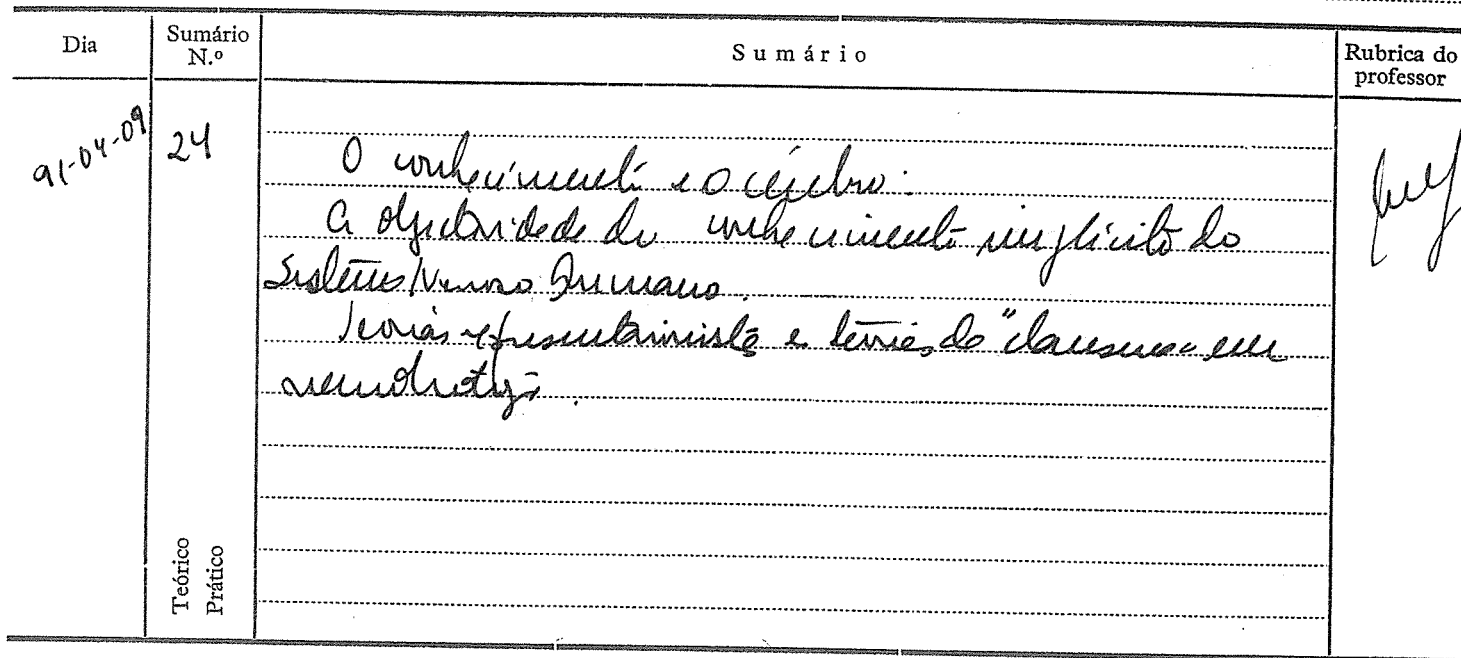 Dia
Sumário N.º
Sumário
Rubrica do professor
91-04-09
24
O conhecimento e o cérebro.
A objectividade do conhecimento implícito do
Sistema Nervoso Humano.
Teorias representacionista e teorias da "clausura" em
Teórico
Prático